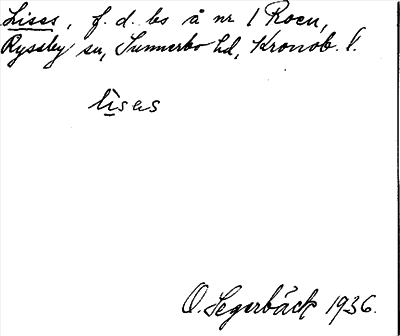 Lisas, f. d. bs å nr 1 Roen,
Ryssby sn, Sunnerbo hd, Kronob. l.
lìsas
O. Segerbäck 1936.